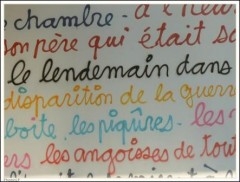 chambre - à l'heur
son père qui était so
le lendemain dans
disparition de la guerre
boîte, les piqûres - les
les angoisses de tout